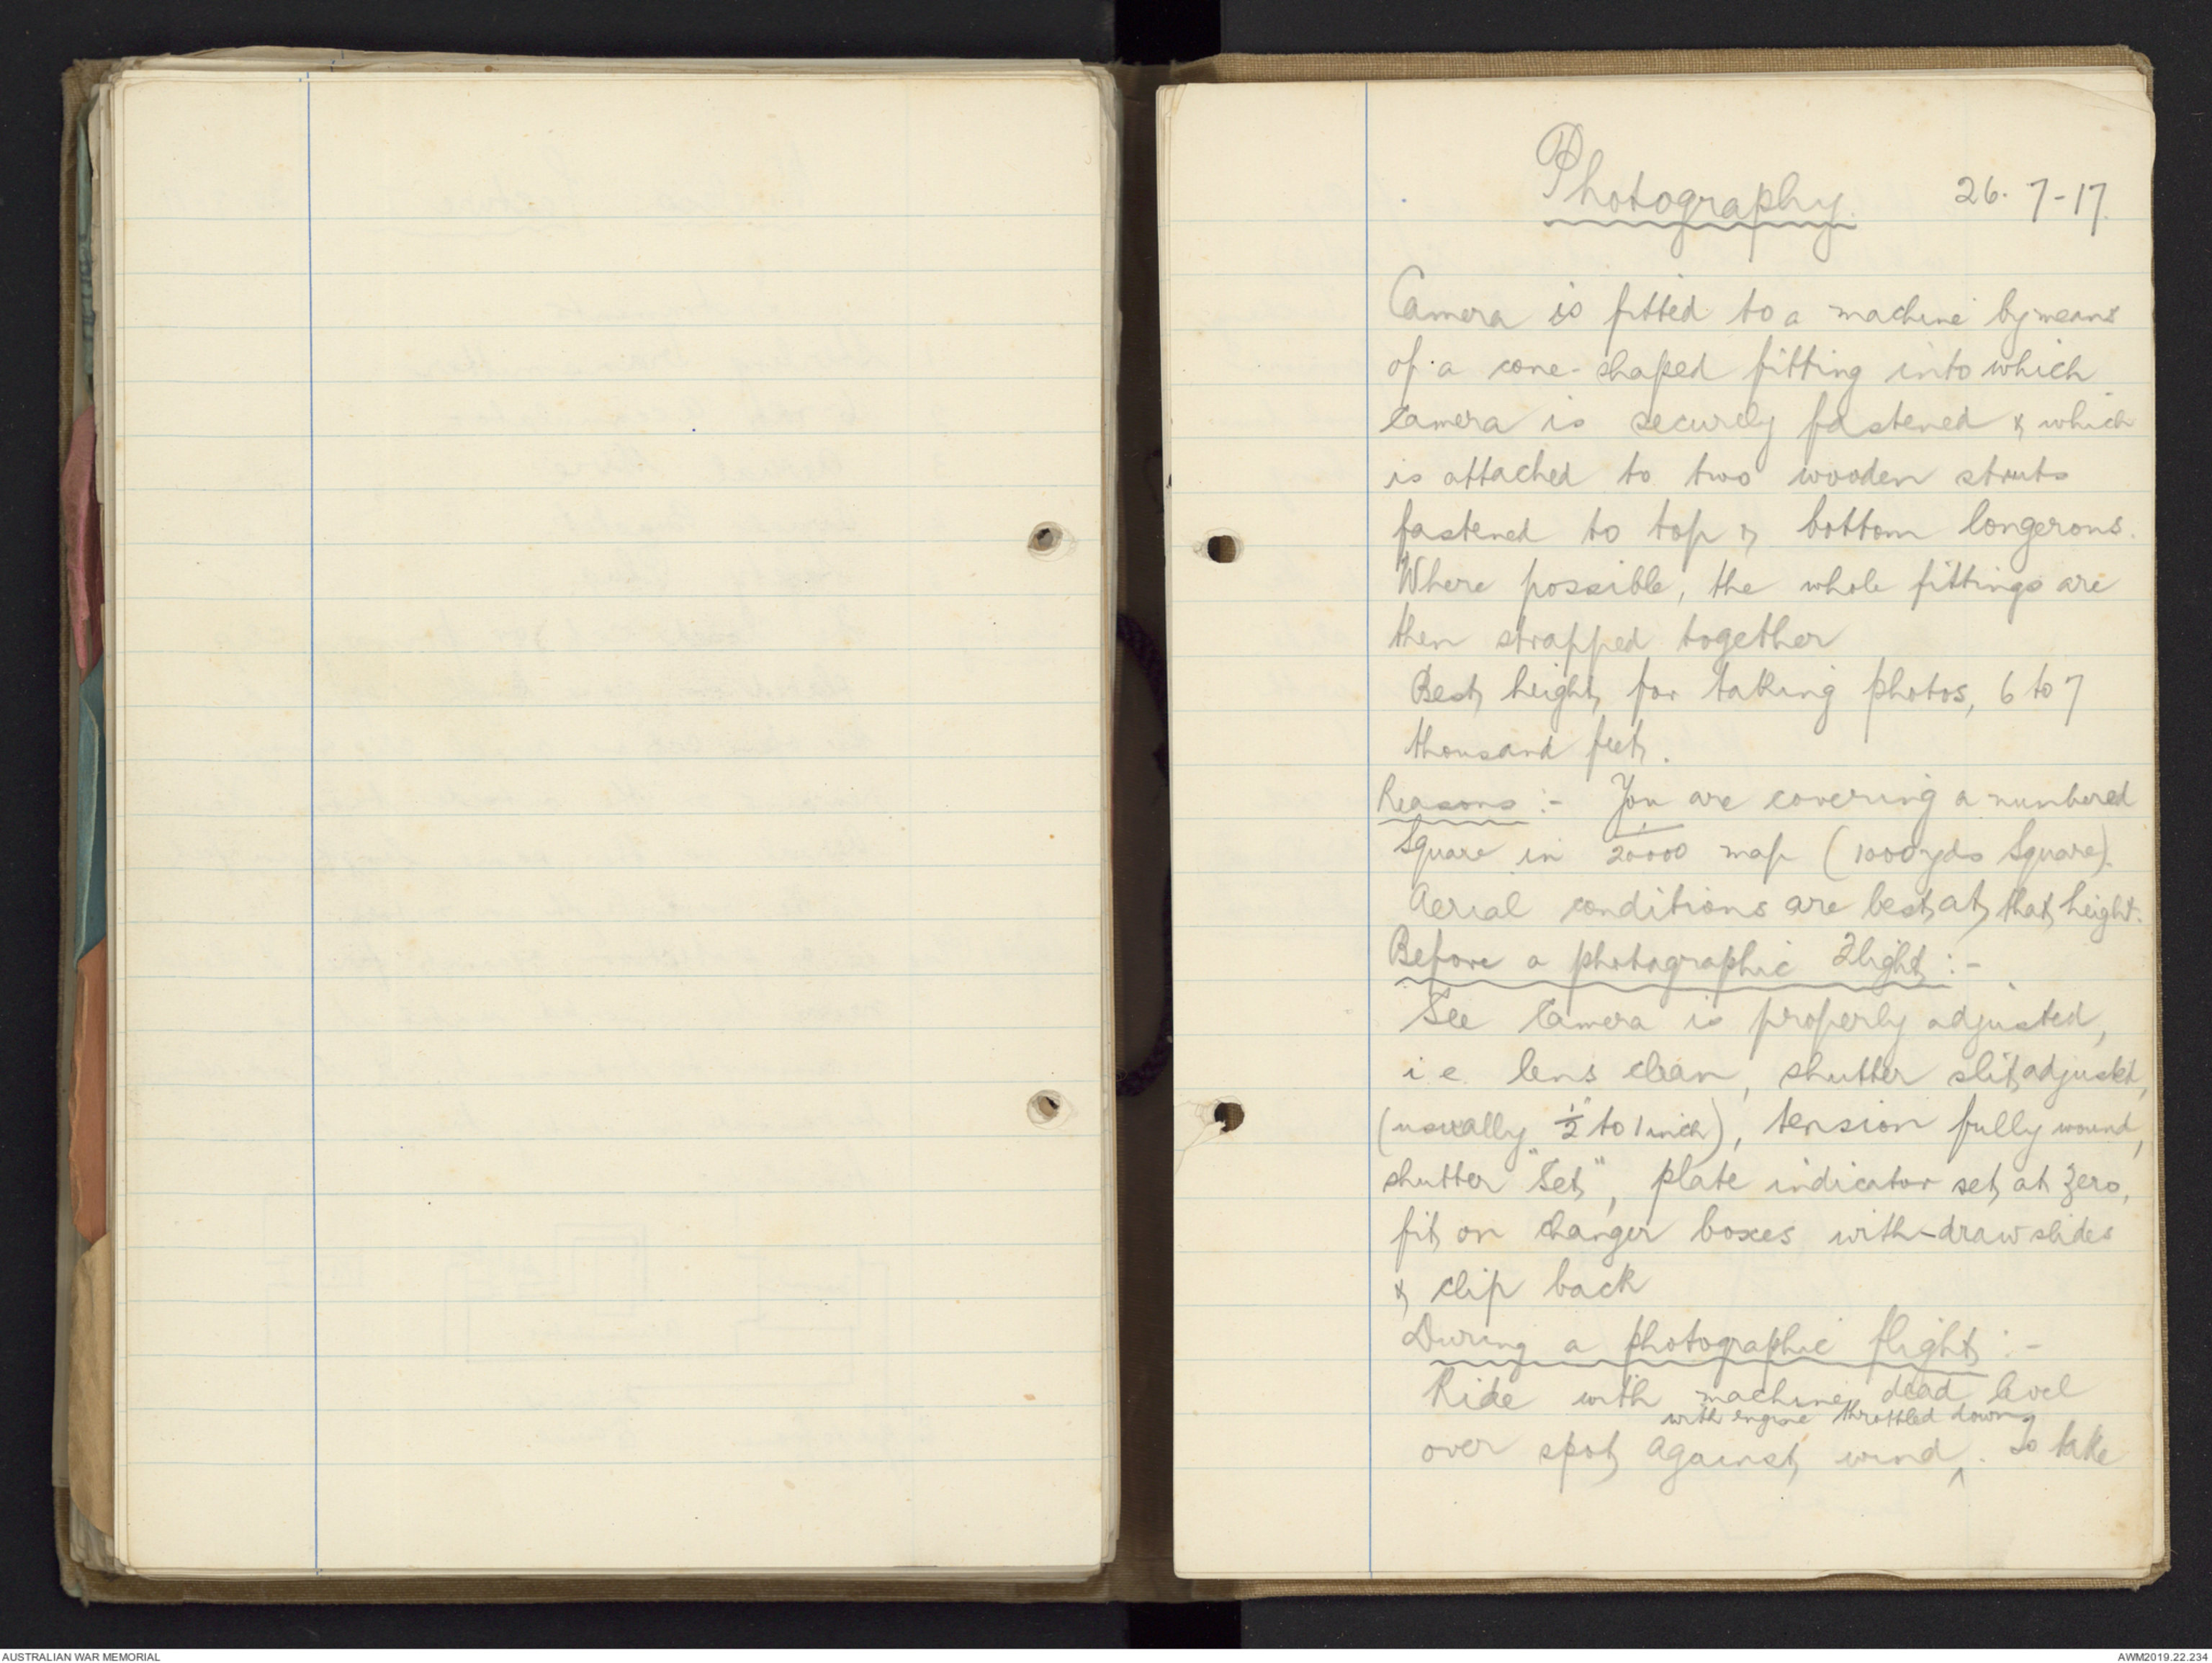 Photography. 26.7-17.
Camera is fitted to a machine by means
of a cone-shaped fitting into which
Camera is securely fastened & which
is attached to two wooden struts
fastened to top & bottom longerons.
Where possible, the whole fittings are
then strapped together
Best height for taking photos, 6 to 7
thousand feet.
Reasons :- You are covering a numbered
Square in 1/20000 map (1000 yds Square).
Aerial conditions are best at that height.
Before a photographic Flight :-
See Camera is properly adjusted,
i.e. lens clean, shutter slit adjusted,
(usually 1/2" to 1 inch), tension fully wound,
shutter "Set", plate indicator set at Zero,
fit on changer boxes with-draw slides
& clip back
During a photographic flight :-
Ride with machine dead level
with engine throttled down
over spot against wind ^. To take
AUSTRALIAN WAR MEMORIAL
AWM2019.22.234